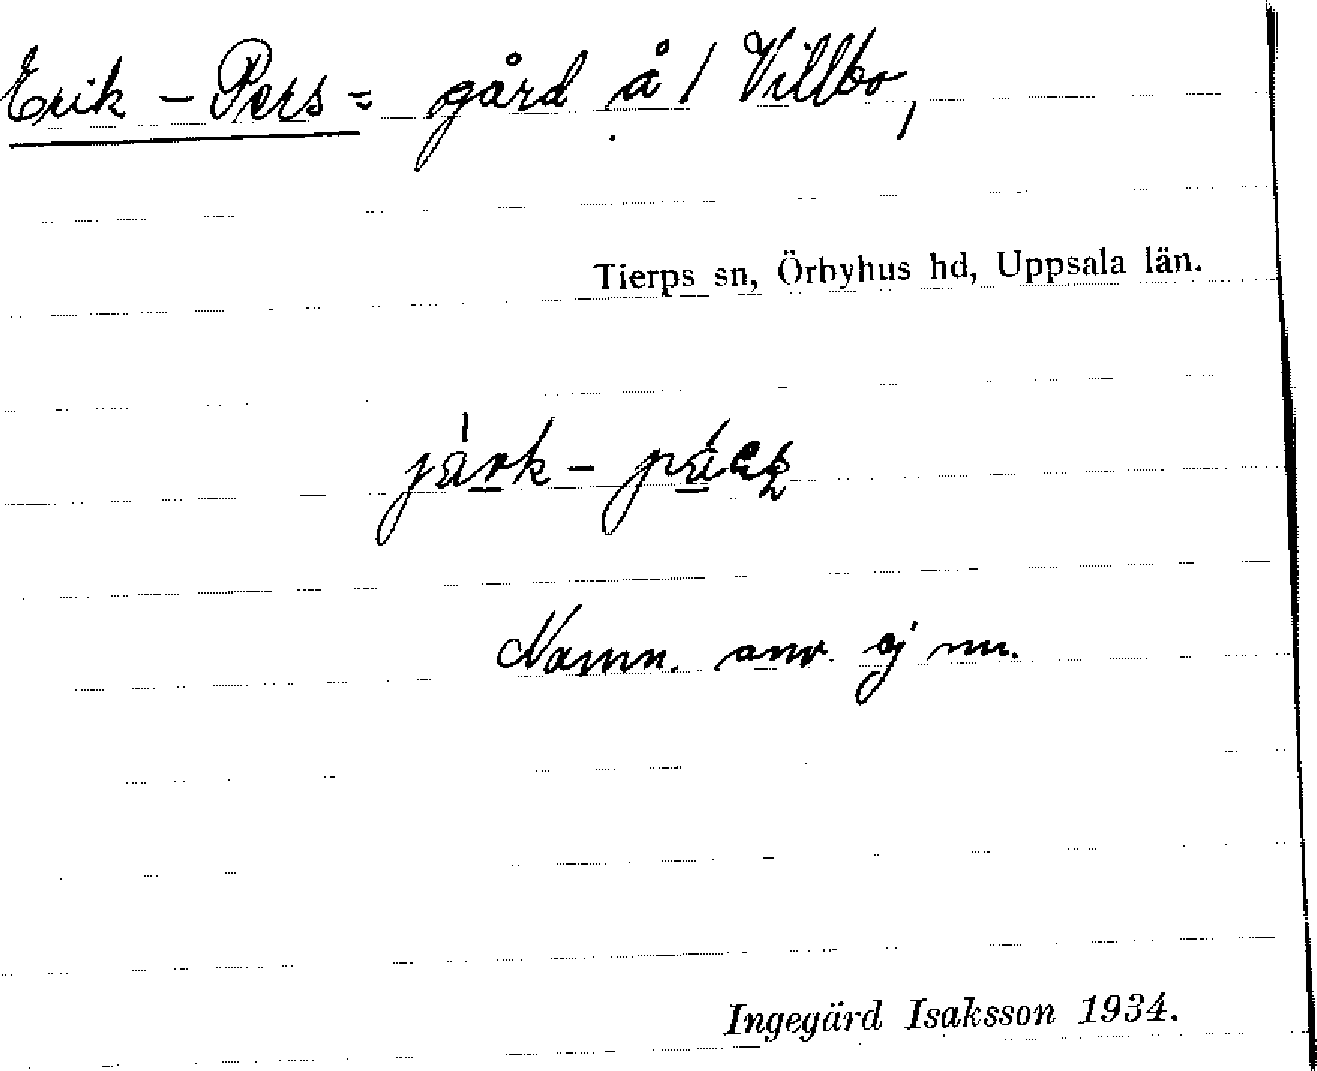 Erik-Pers= gård å 1 Villbo,
Tierps sn, Örbyhus hd, Uppsala län.
järk-
Namn. anv. ej nu.
Ingegärd Isaksson 1934.